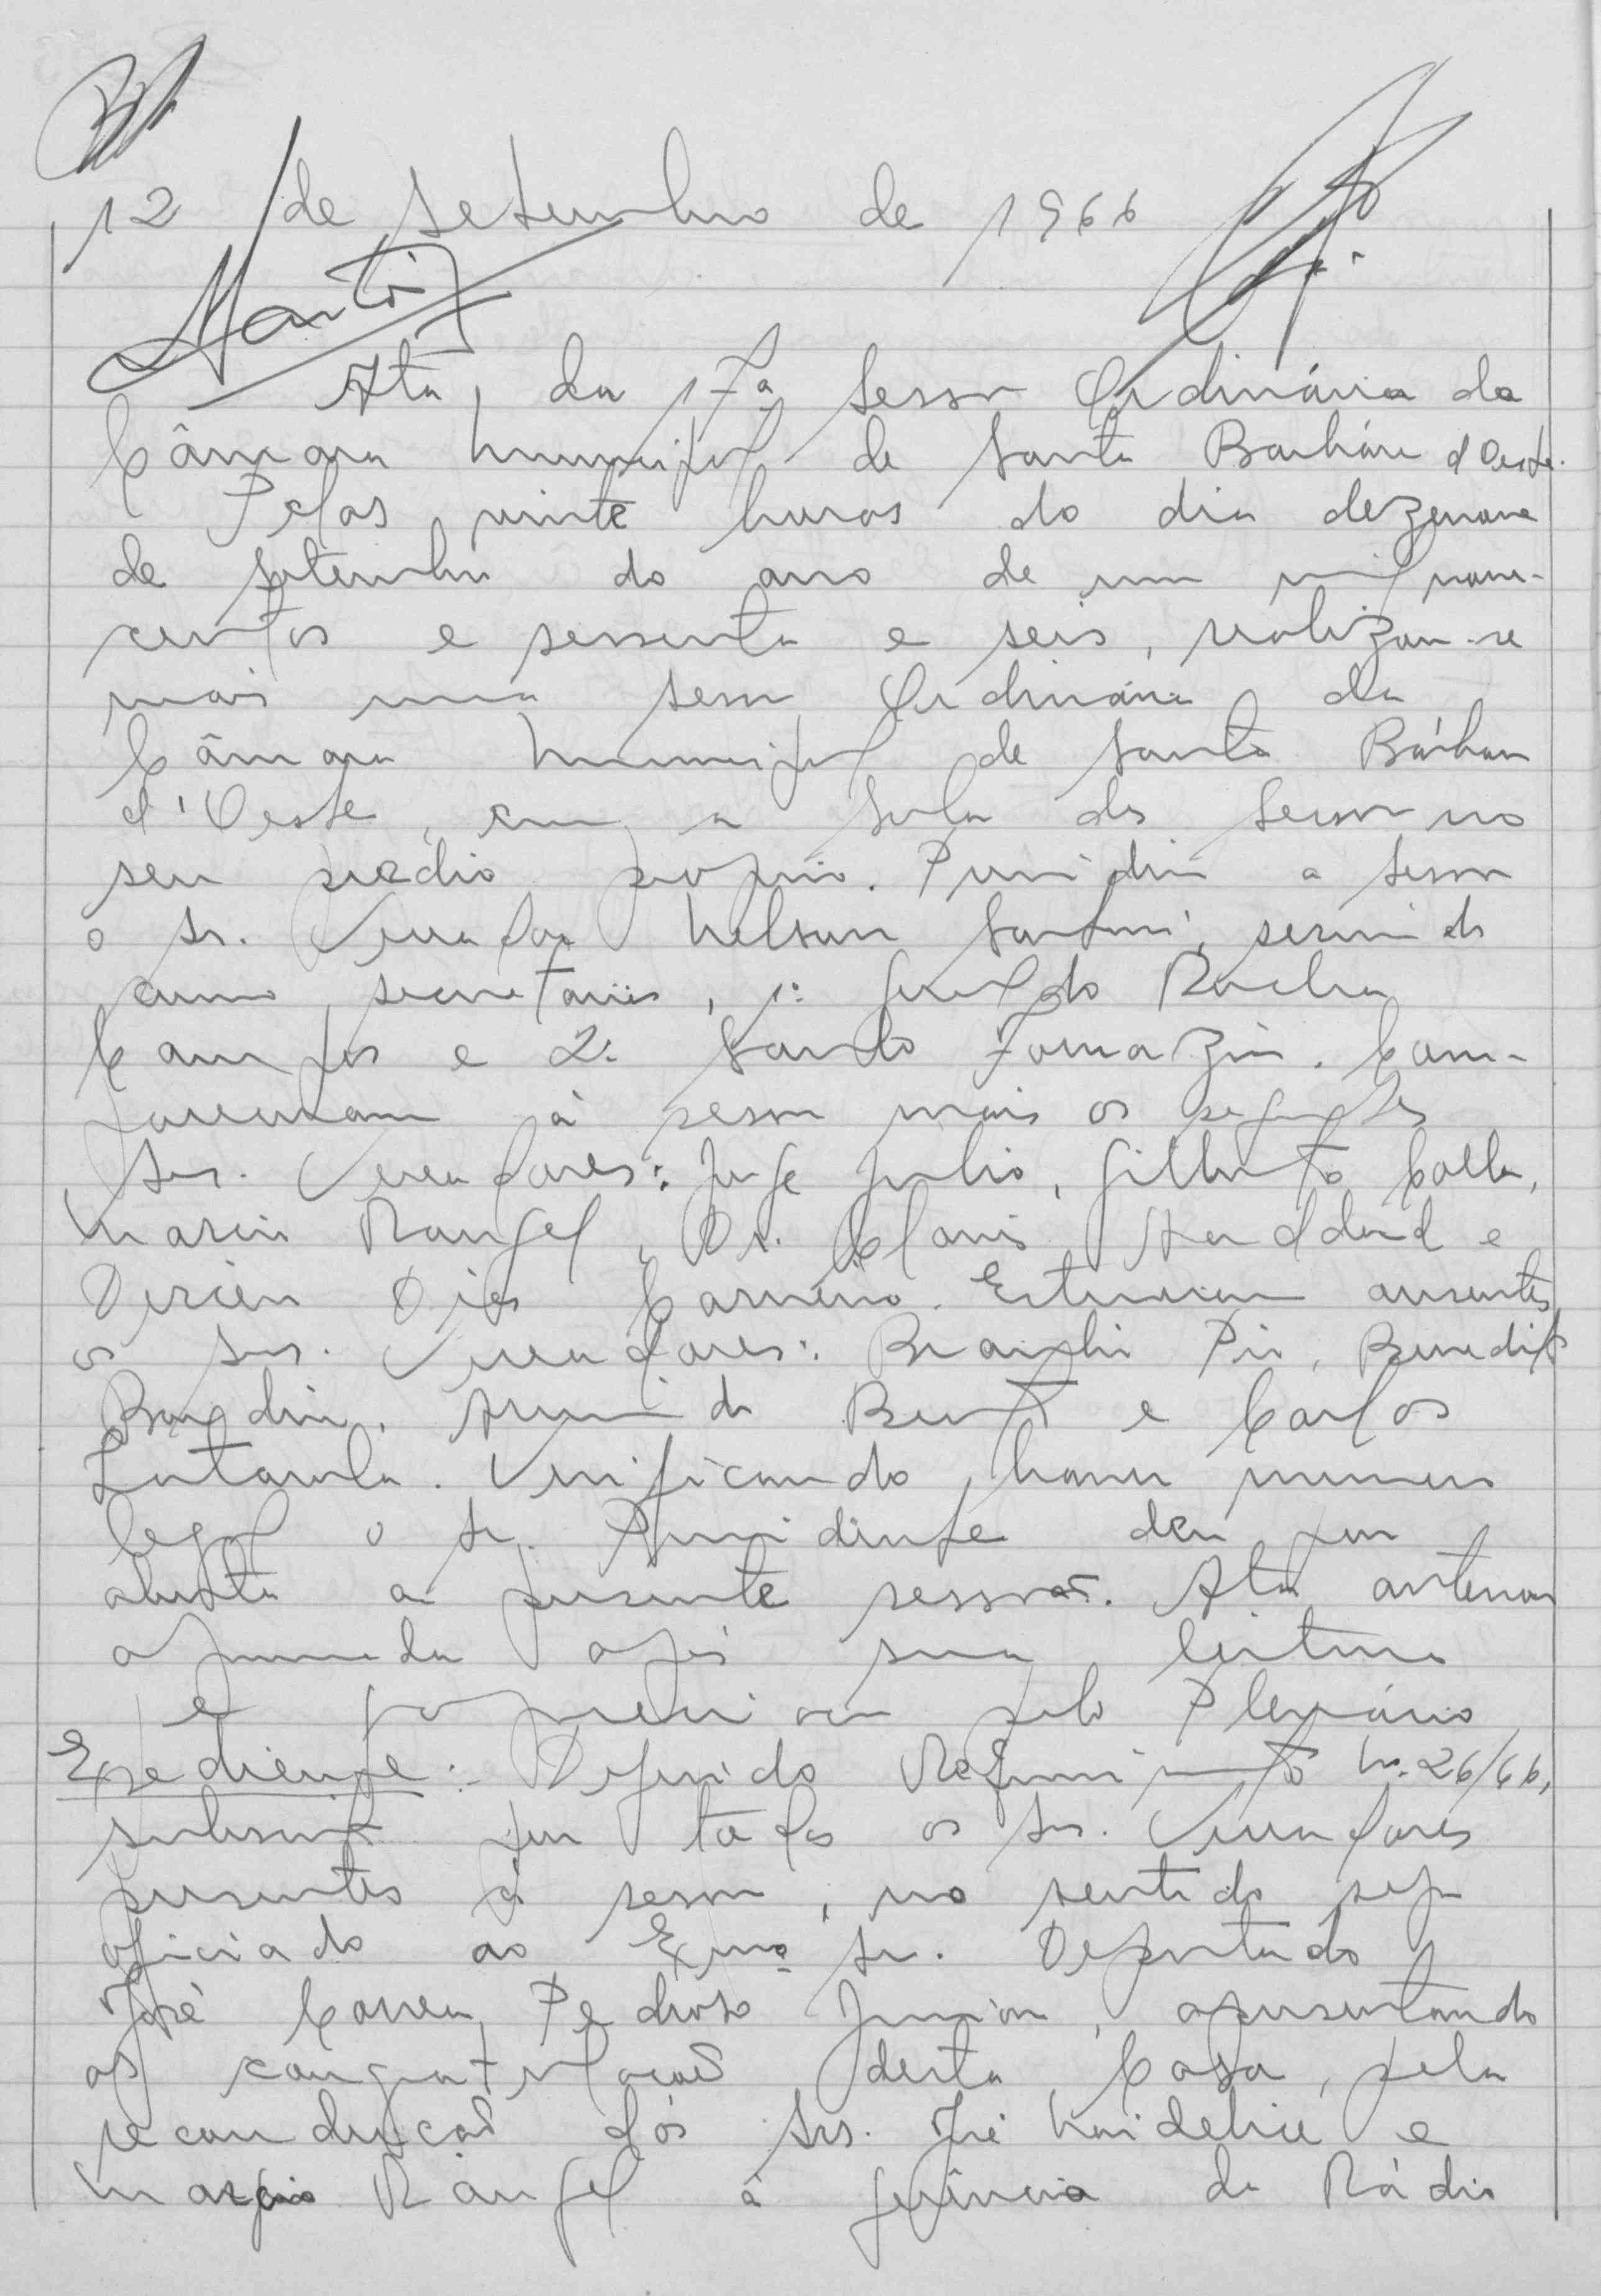 12 de setembro de 1966
Ata da 17ª sessão Ordinária da
Câmara Municipal de Santa Bárbara d'Oeste.
Pelas vinte horas do dia dezenove
de setembro do ano de um mil nove-
centos e sessenta e seis, realizou-se
mais uma sessão Ordinária da
Câmara Municipal de Santa Bárbara
d'Oeste, com a sala de sessão no
seu prédio próprio. Presidiu a sessão
o sr. Vereador Nelson, servindo
como secretários, 1º Geraldo Rocha
Campos e 2º Santo Fornazin. Com-
pareceram à sessão mais os seguintes
srs. Vereadores: Jorge Julio, Gilberto Calla,
Marcio Rangel, Dr. Clovis e
Dirceu Dias Carneiro. Estiveram ausentes
os srs. Vereadores: Braulio Pio, Benedito
Arruda Bento e Carlos
Lutarola. Verificando haver numero
legal o sr. Presidente deu por
aberta a presente sessão. Ata anterior
aprovada após sua leitura
e pelo Plenário
Expediente:- Deferido Requerimento No. 26/66,
subscrito por todos os srs. Vereadores
presentes à sessão, no sentido seja
oficiado ao Exmo sr. Deputado
José Correa Pedroso Junior, apresentando
as congratulações desta Casa, pela
recondução dos srs. José e
Marcio Rangel à gerência da Rádio